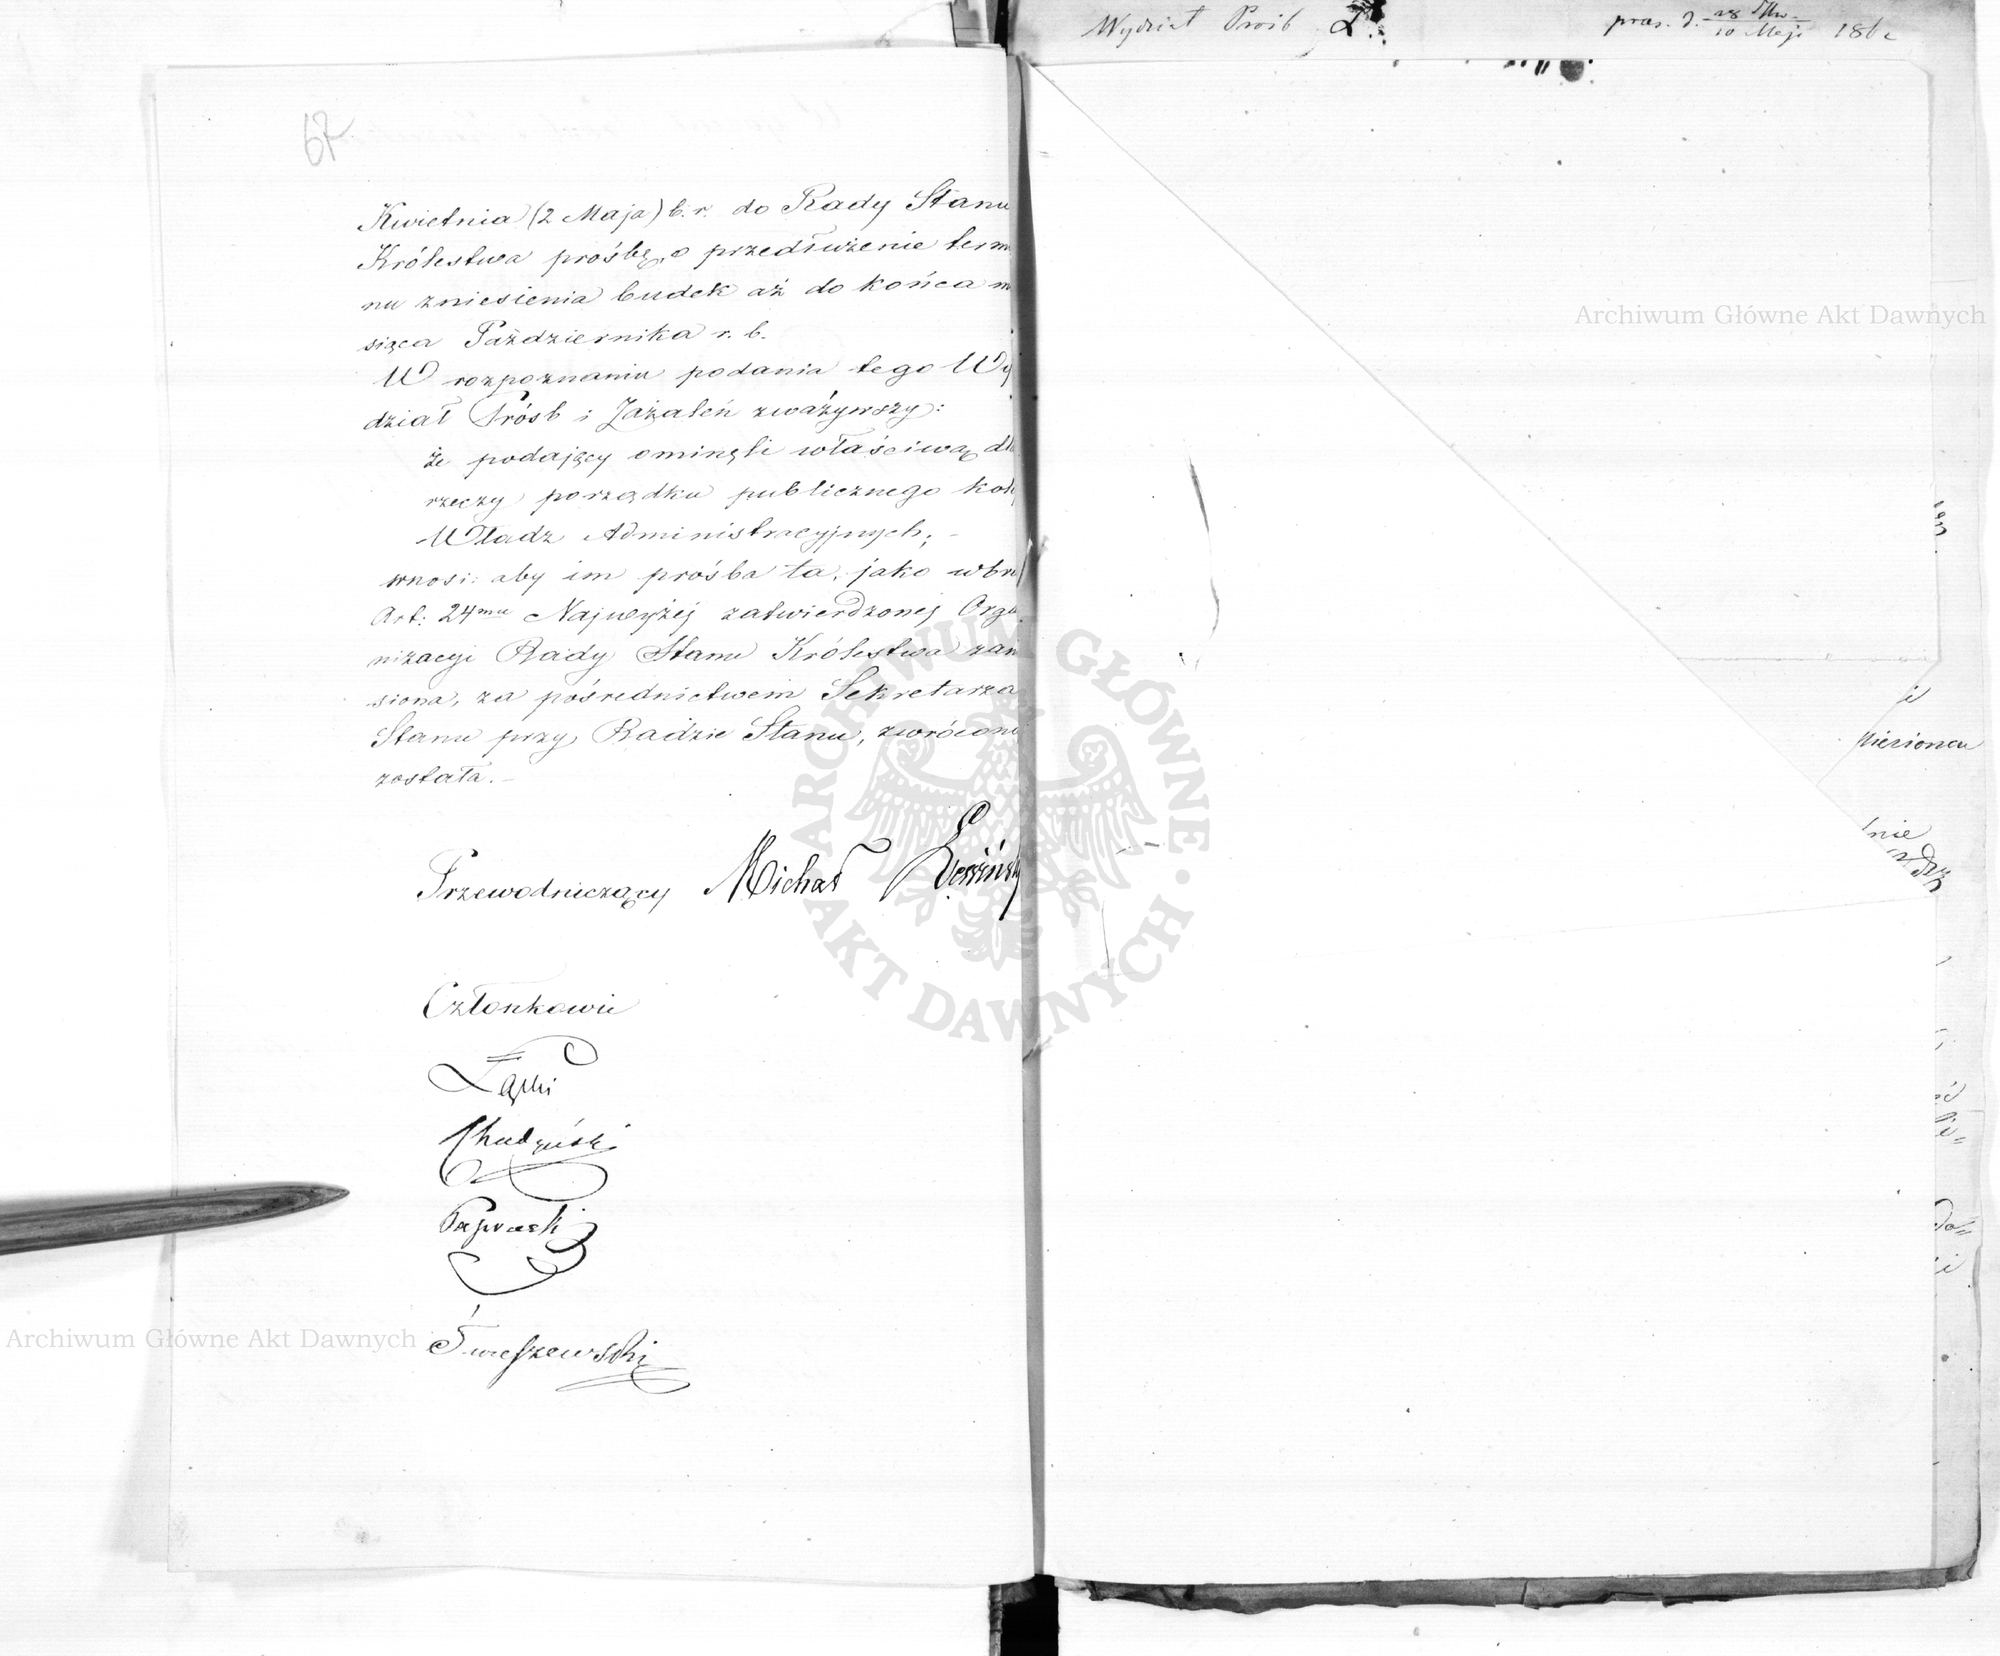 Wydział Próśb
pras. d. 28 10 Maja 186
67
Kwietnia (2 Maja) b. r. do Rady Stanu
Królestwa prośbę, o przedłużenie termi
nu zniesienia budek aż do końca m
siąca Października r. b.
W rozpoznaniu podania tego Wy
dział Próśb i Zażaleń zważywszy:
że podający ominęli właściwą dla
rzeczy porządku publicznego kol
Władz Administracyjnych; –
wnosi: aby im prośba ta, jako wbre
Art: 24mu Najwyżej zatwierdzonej Orga
nizacyi Rady Stanu Królestwa zan
siona, za pośrednictwem Sekretarza
Stanu przy Radzie Stanu, zwrócona
została. –
Przewodniczący Michał
Członkowie
Łąski
Chudzyński
Paprocki
Archiwum Główne Akt Dawnych
Archiwum Główne Akt Dawnych
ARCHIWUM GŁÓWNE · AKT DAWNYCH ·